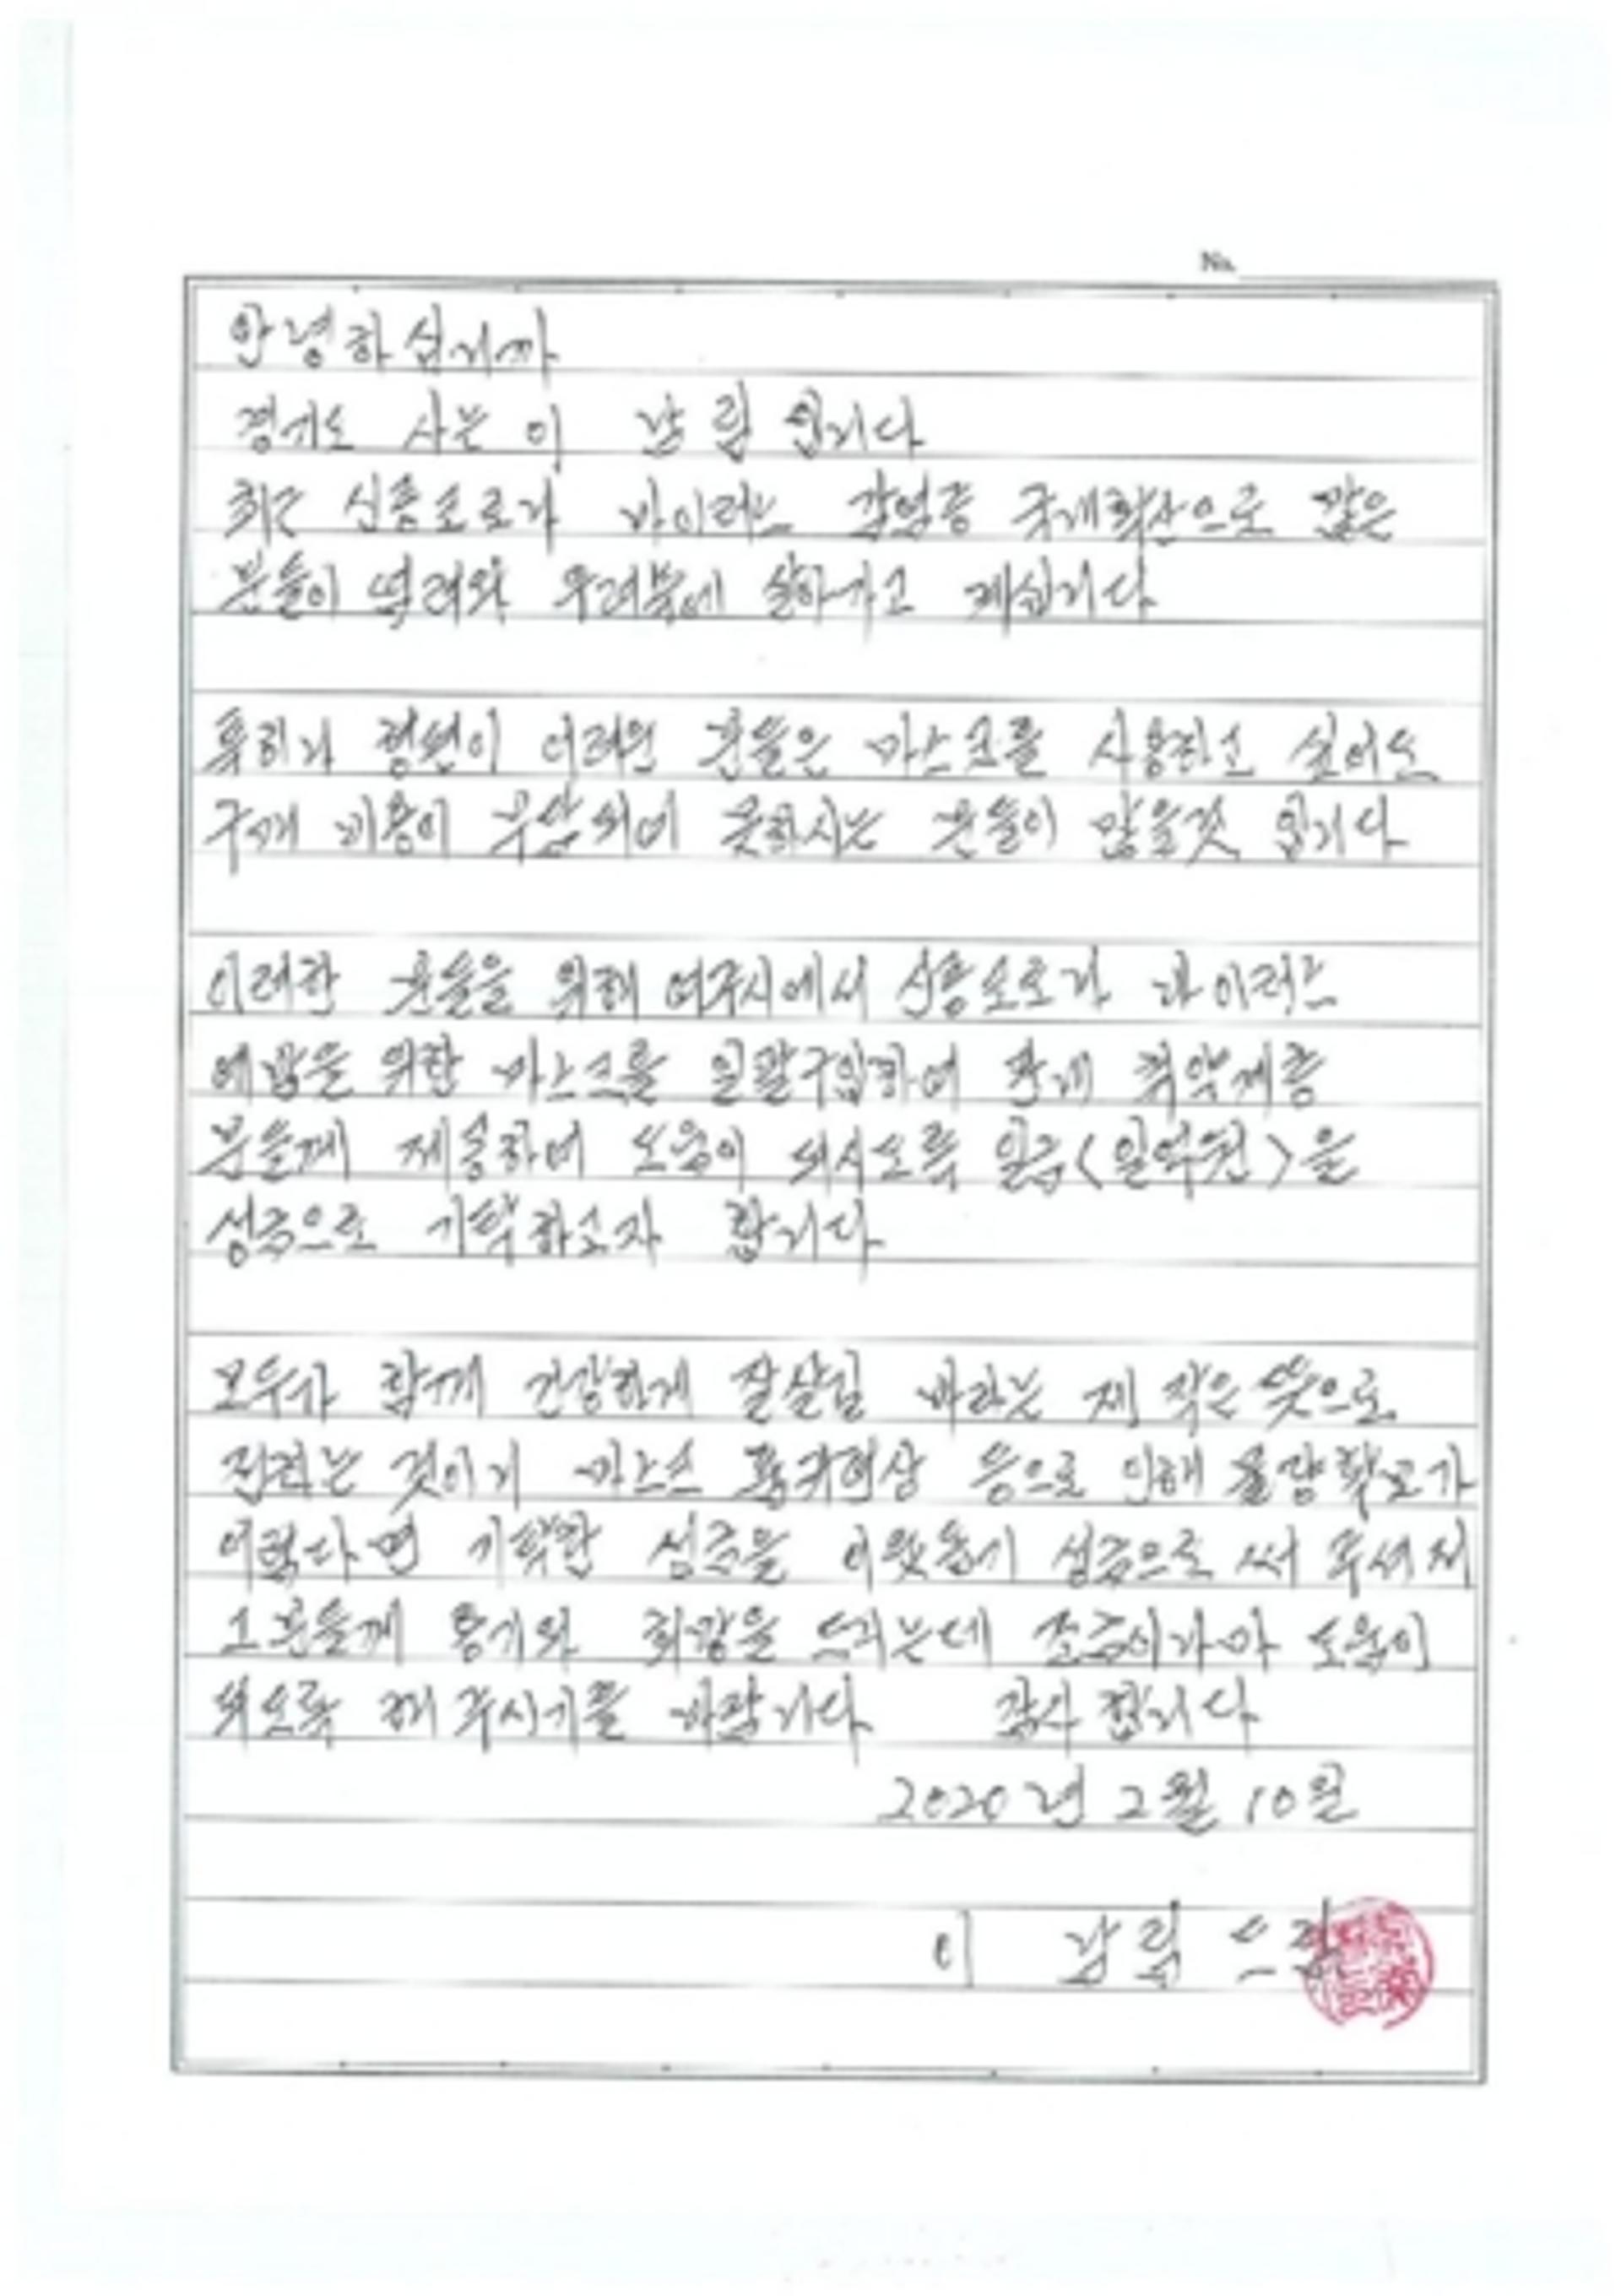 No.
안녕하십니까
경기도 사는 이 남림 입니다
최근 신종코로나 바이러스 감염증 국내확산으로 많은
분들이 염려와 우려속에 살아가고 계십니다
특히나 형편이 어려운 분들은 마스크를 사용하고 싶어도
구매 비용이 부담되어 못하시는 분들이 많을것 입니다
이러한 분들을 위해 여주시에서 신종코로나 바이러스
예방을 위한 마스크를 일괄구입하여 관내 취약계층
분들께 제공하여 도움이 되시도록 일금<일억원>을
성금으로 기탁하고자 합니다
모두가 함께 건강하게 잘살길 바라는 제 작은 뜻으로
전하는 것이니 마스크 품귀현상 등으로 인해 물량확보가
어렵다면 기탁한 성금을 이웃돕기 성금으로 써 주셔서
그분들께 용기와 희망을 드리는데 조금이나마 도움이
되도록 해 주시기를 바랍니다 감사 합니다
2020년 2월 10일
이 남림 드림